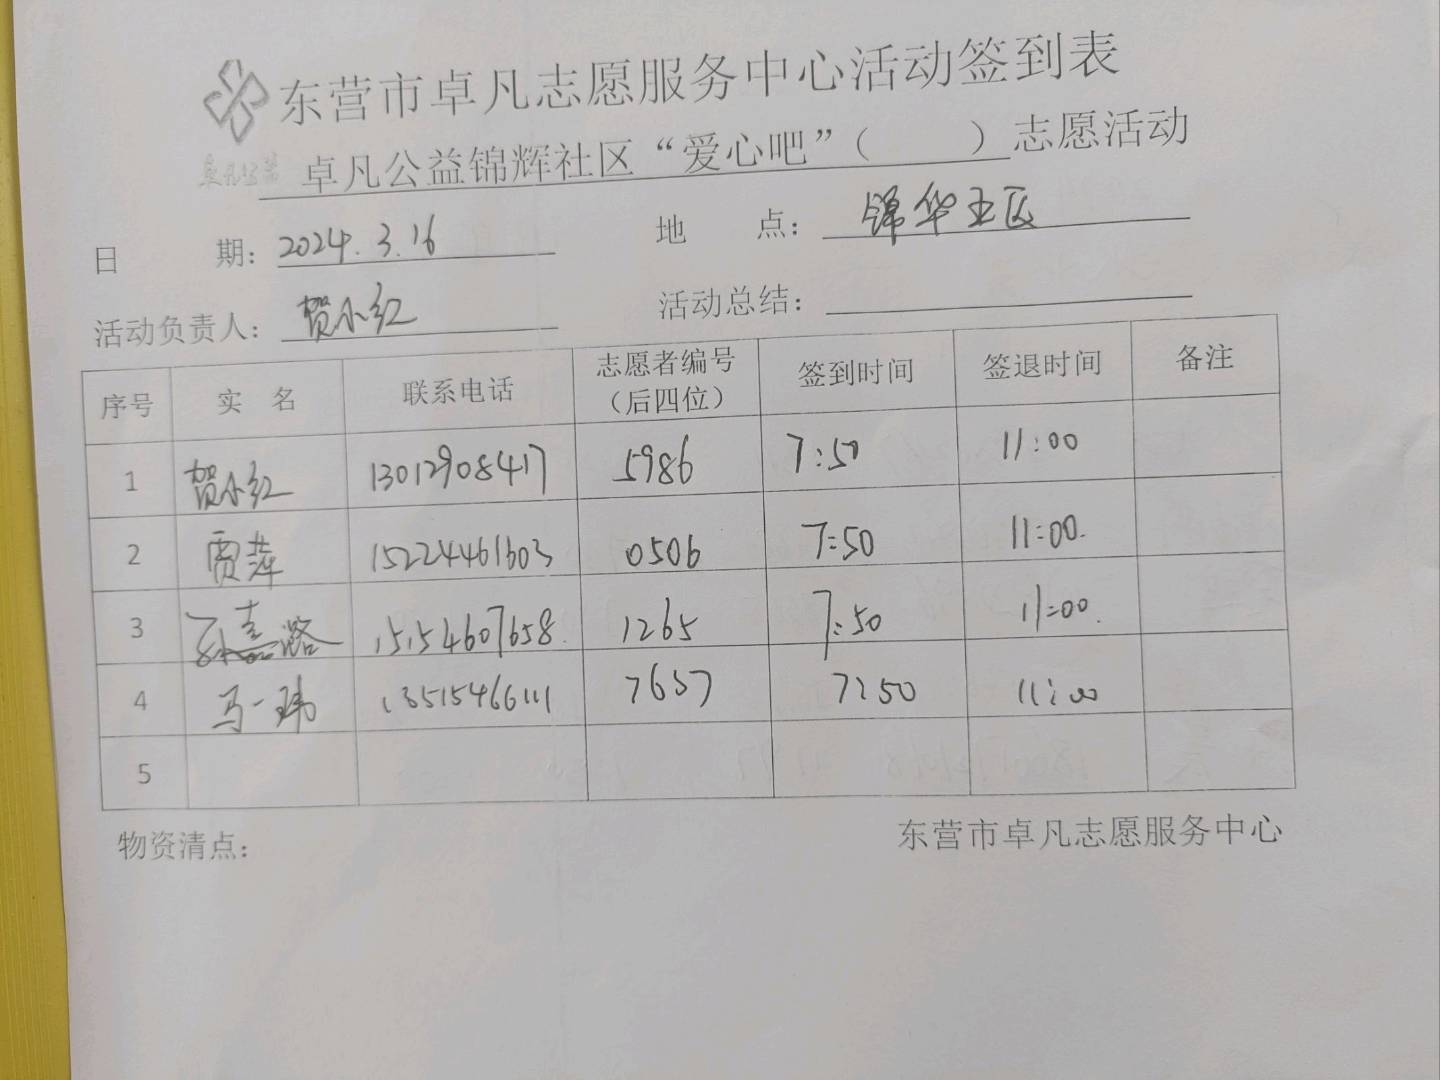 东营市卓凡志愿服务中心活动签到表
卓凡公益
卓凡公益锦辉社区“爱心吧”( )志愿活动
日 期: 2024.3.16 地 点: 锦华五区
活动负责人: 贺小红 活动总结:
序号 实 名 联系电话 志愿者编号(后四位) 签到时间 签退时间 备注
1 贺小红 13012908417 5986 7:50 11:00
2 贾萍 15224461603 0506 7:50 11:00
3 15154607658 1265 7:50 11:00
4 马一玮 13515466111 7657 7:50 11:00
5
物资清点: 东营市卓凡志愿服务中心